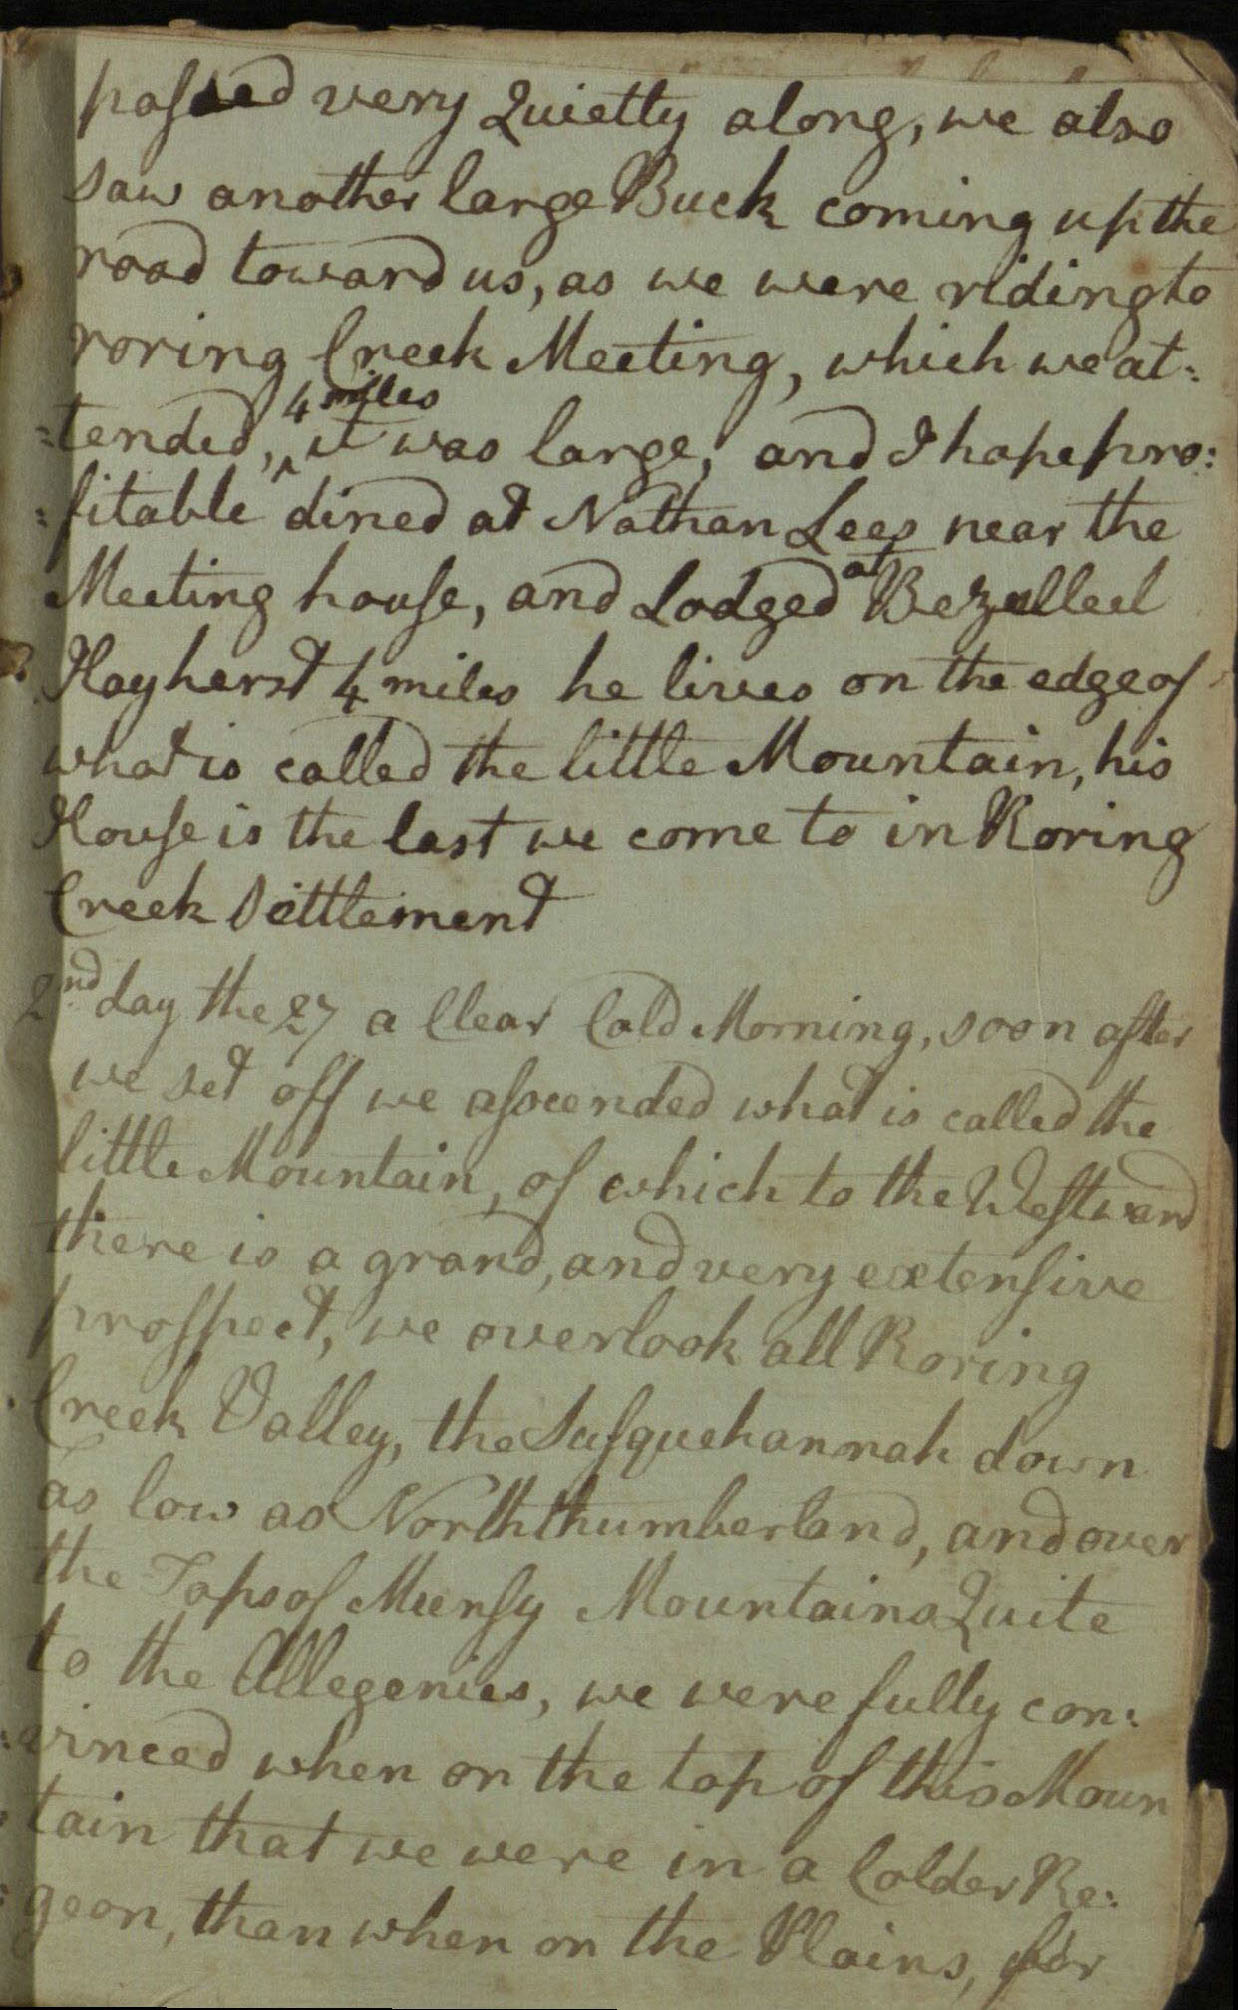 passed very Quietly along, we also
saw another large Buck coming up the
road toward us, as we were riding to
roring Creek Meeting, which we at:
=tended, ^4 miles it was large, and I hope pro:
=fitable dined at Nathan Lees near the
Meeting house, and Lodged at Bezelleel
Hayherst 4 miles he lives on the edge of
what is called the little Mountain, his
House is the last we come to in Roring
Creek Settlement
2nd day the 27 a Clear Cold Morning, soon after
we set off we asscended what is called the
little Mountain, of which to the Westward
there is a grand, and very extensive
prospect, we overlook all Roring
Creek Valley, the Susquehannah down
as low as Norththumberland, and over
the Tops of Munsy Mountains Quite
to the Allegenies, we were fully con:
=vinced when on the top of this Moun
tain that we were in a Colder Re:
=geon, than when on the Plains, for